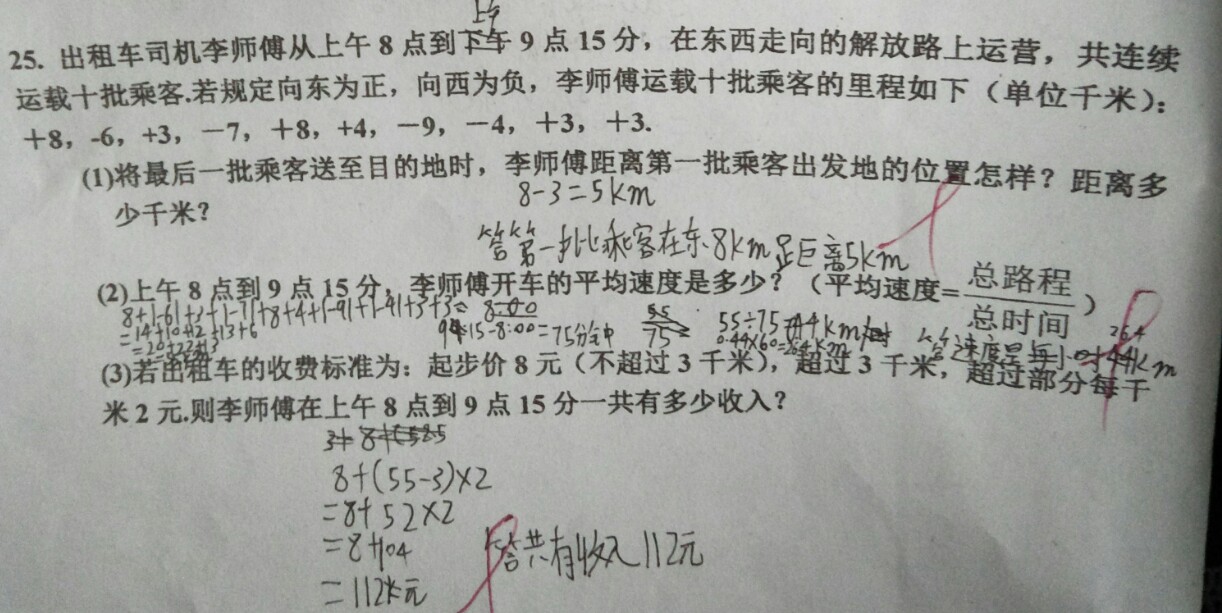 上午
25. 出租车司机李师傅从上午 8 点到下午 9 点 15 分，在东西走向的解放路上运营，共连续
运载十批乘客.若规定向东为正，向西为负，李师傅运载十批乘客的里程如下（单位千米）：
＋8，-6，+3，－7，＋8，+4，－9，－4，＋3，＋3.
(1)将最后一批乘客送至目的地时，李师傅距离第一批乘客出发地的位置怎样？距离多
少千米？
8-3=5km
答第一批乘客在东8km距离5km
(2)上午 8 点到 9 点 15 分，李师傅开车的平均速度是多少？（平均速度=总路程/总时间）
8+|-6|+3+|-7|+8+4+|-9|+|-4|+3+3=
=14+10+12+13+6
=20+22+13
15-8:00=75分钟
55
75
55÷75
0.44×60=
答速度是每小时
26.4
km
(3)若出租车的收费标准为：起步价 8 元（不超过 3 千米），超过 3 千米，超过部分每千
米 2 元.则李师傅在上午 8 点到 9 点 15 分一共有多少收入？
8+(55-3)×2
=8+52×2
=8+104
=112元
答共有收入112元